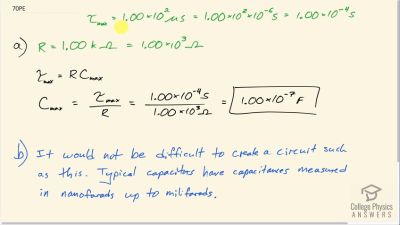 70PE
τmax = 1.00×10² μs = 1.00×10²×10⁻⁶ s = 1.00×10⁻⁴ s
a) R = 1.00 kΩ = 1.00×10³ Ω
τmax = RCmax
Cmax = τmax / R = 1.00×10⁻⁴ s / 1.00×10³ Ω = 1.00×10⁻⁷ F
b) It would not be difficult to create a circuit such
as this. Typical capacitors have capacitances measured
in nanofarads up to milifarads.
College Physics
ANSWERS